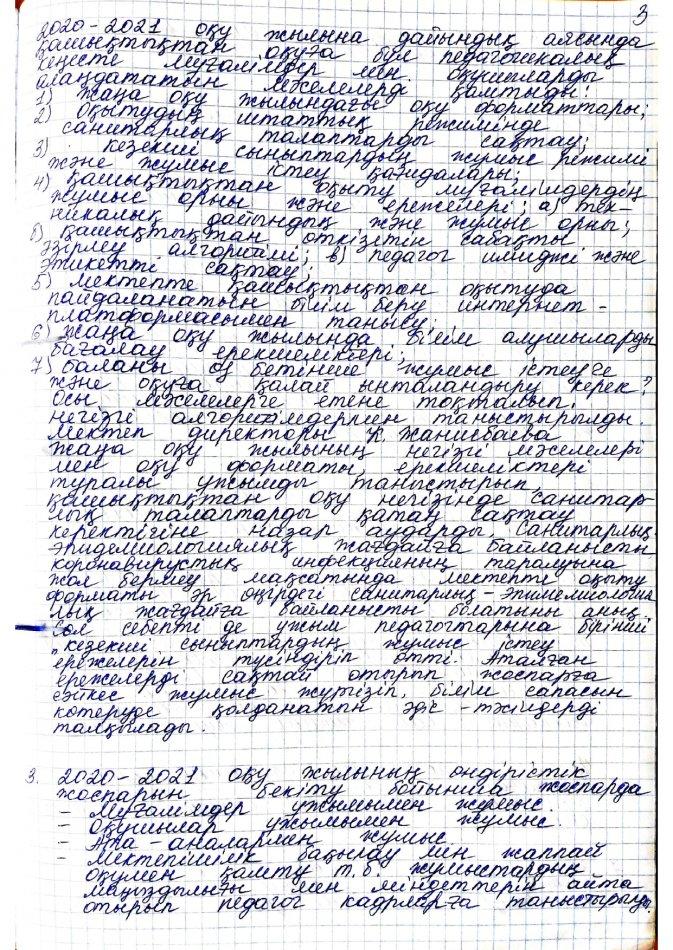 3
2020-2021 оқу жылына дайындық аясында
қашықтықтан оқуға бұл педагогикалық
кеңесте мұғалімдер мен оқушыларды
алаңдататын мәселелерді қамтыды:
1) жаңа оқу жылындағы оқу форматтары;
2) оқытудың штаттық режимінде
санитарлық талаптарды сақтау;
3) кезекші сыныптардың жұмыс режимі
және жұмыс істеу қағидалары;
4) қашықтықтан оқыту мұғалімдердің
жұмыс орны және ережелері: а) тех-
никалық дайындық және жұмыс орны;
б) қашықтықтан өткізетін сабақты
әзірлеу алгоритмі; в) педагог имиджі және
этикетті сақтау;
5) мектепте қашықтықтан оқытуда
пайдаланатын білім беру интернет-
платформасымен танысу;
6) жаңа оқу жылында білім алушыларды
бағалау ерекшеліктері;
7) баланы өз бетінше жұмыс істеуге
және оқуға қалай ынталандыру керек?
Осы мәселелерге етене тоқталып,
негізгі алгоритімдермен таныстырылды.
Мектеп директоры К. Жанисбаева
жаңа оқу жылының негізгі мәселелері
мен оқу форматы, ерекшеліктері
туралы ұжымды таныстырып,
қашықтықтан оқу негізінде санитар-
лық талаптарды қатаң сақтау
керектігіне назар аударды. Санитарлық-
эпидемиологиялық жағдайға байланысты
коронавирустық инфекцияның таралуына
жол бермеу мақсатында мектепті оқыту
форматы әр өңірдегі санитарлық-эпидемиология
лық жағдайға байланысты болатыны анық.
Сол себепті де ұжым педагогтарына бірінші
кезекші сыныптардың жұмыс істеу
ережелерін түсіндіріп өтті. Аталған
ережелерді сақтай отырып жоспарға
сәйкес жұмыс жүргізіп, білім сапасын
көтеруде қолданатын әдіс-тәсілдерді
талқылады.
3. 2020-2021 оқу жылының өндірістік
жоспарын бекіту бойынша жоспарда
- Мұғалімдер ұжымымен жұмыс.
- Оқушылар ұжымымен жұмыс.
- Ата-аналармен жұмыс
- Мектепішілік бақылау мен жаппай
оқумен қамту т.б. жұмыстардың
маңыздылығы мен міндеттерін айта
отырып педагог кадрларға таныстырылды.